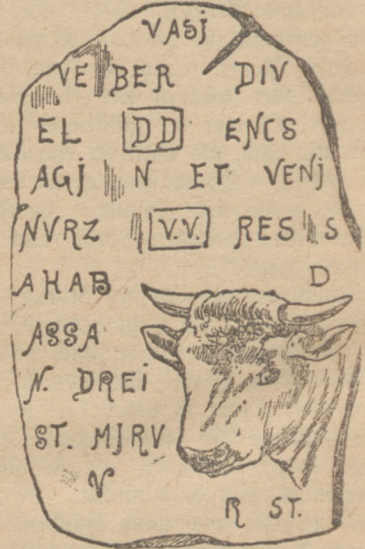 VASJ
VE BER DIV
EL DD ENCS
AGJ N ET VENJ
NVRZ V.V. RES S
AHAB D
ASSA
N. DREI
ST. MJRV
V
R ST.